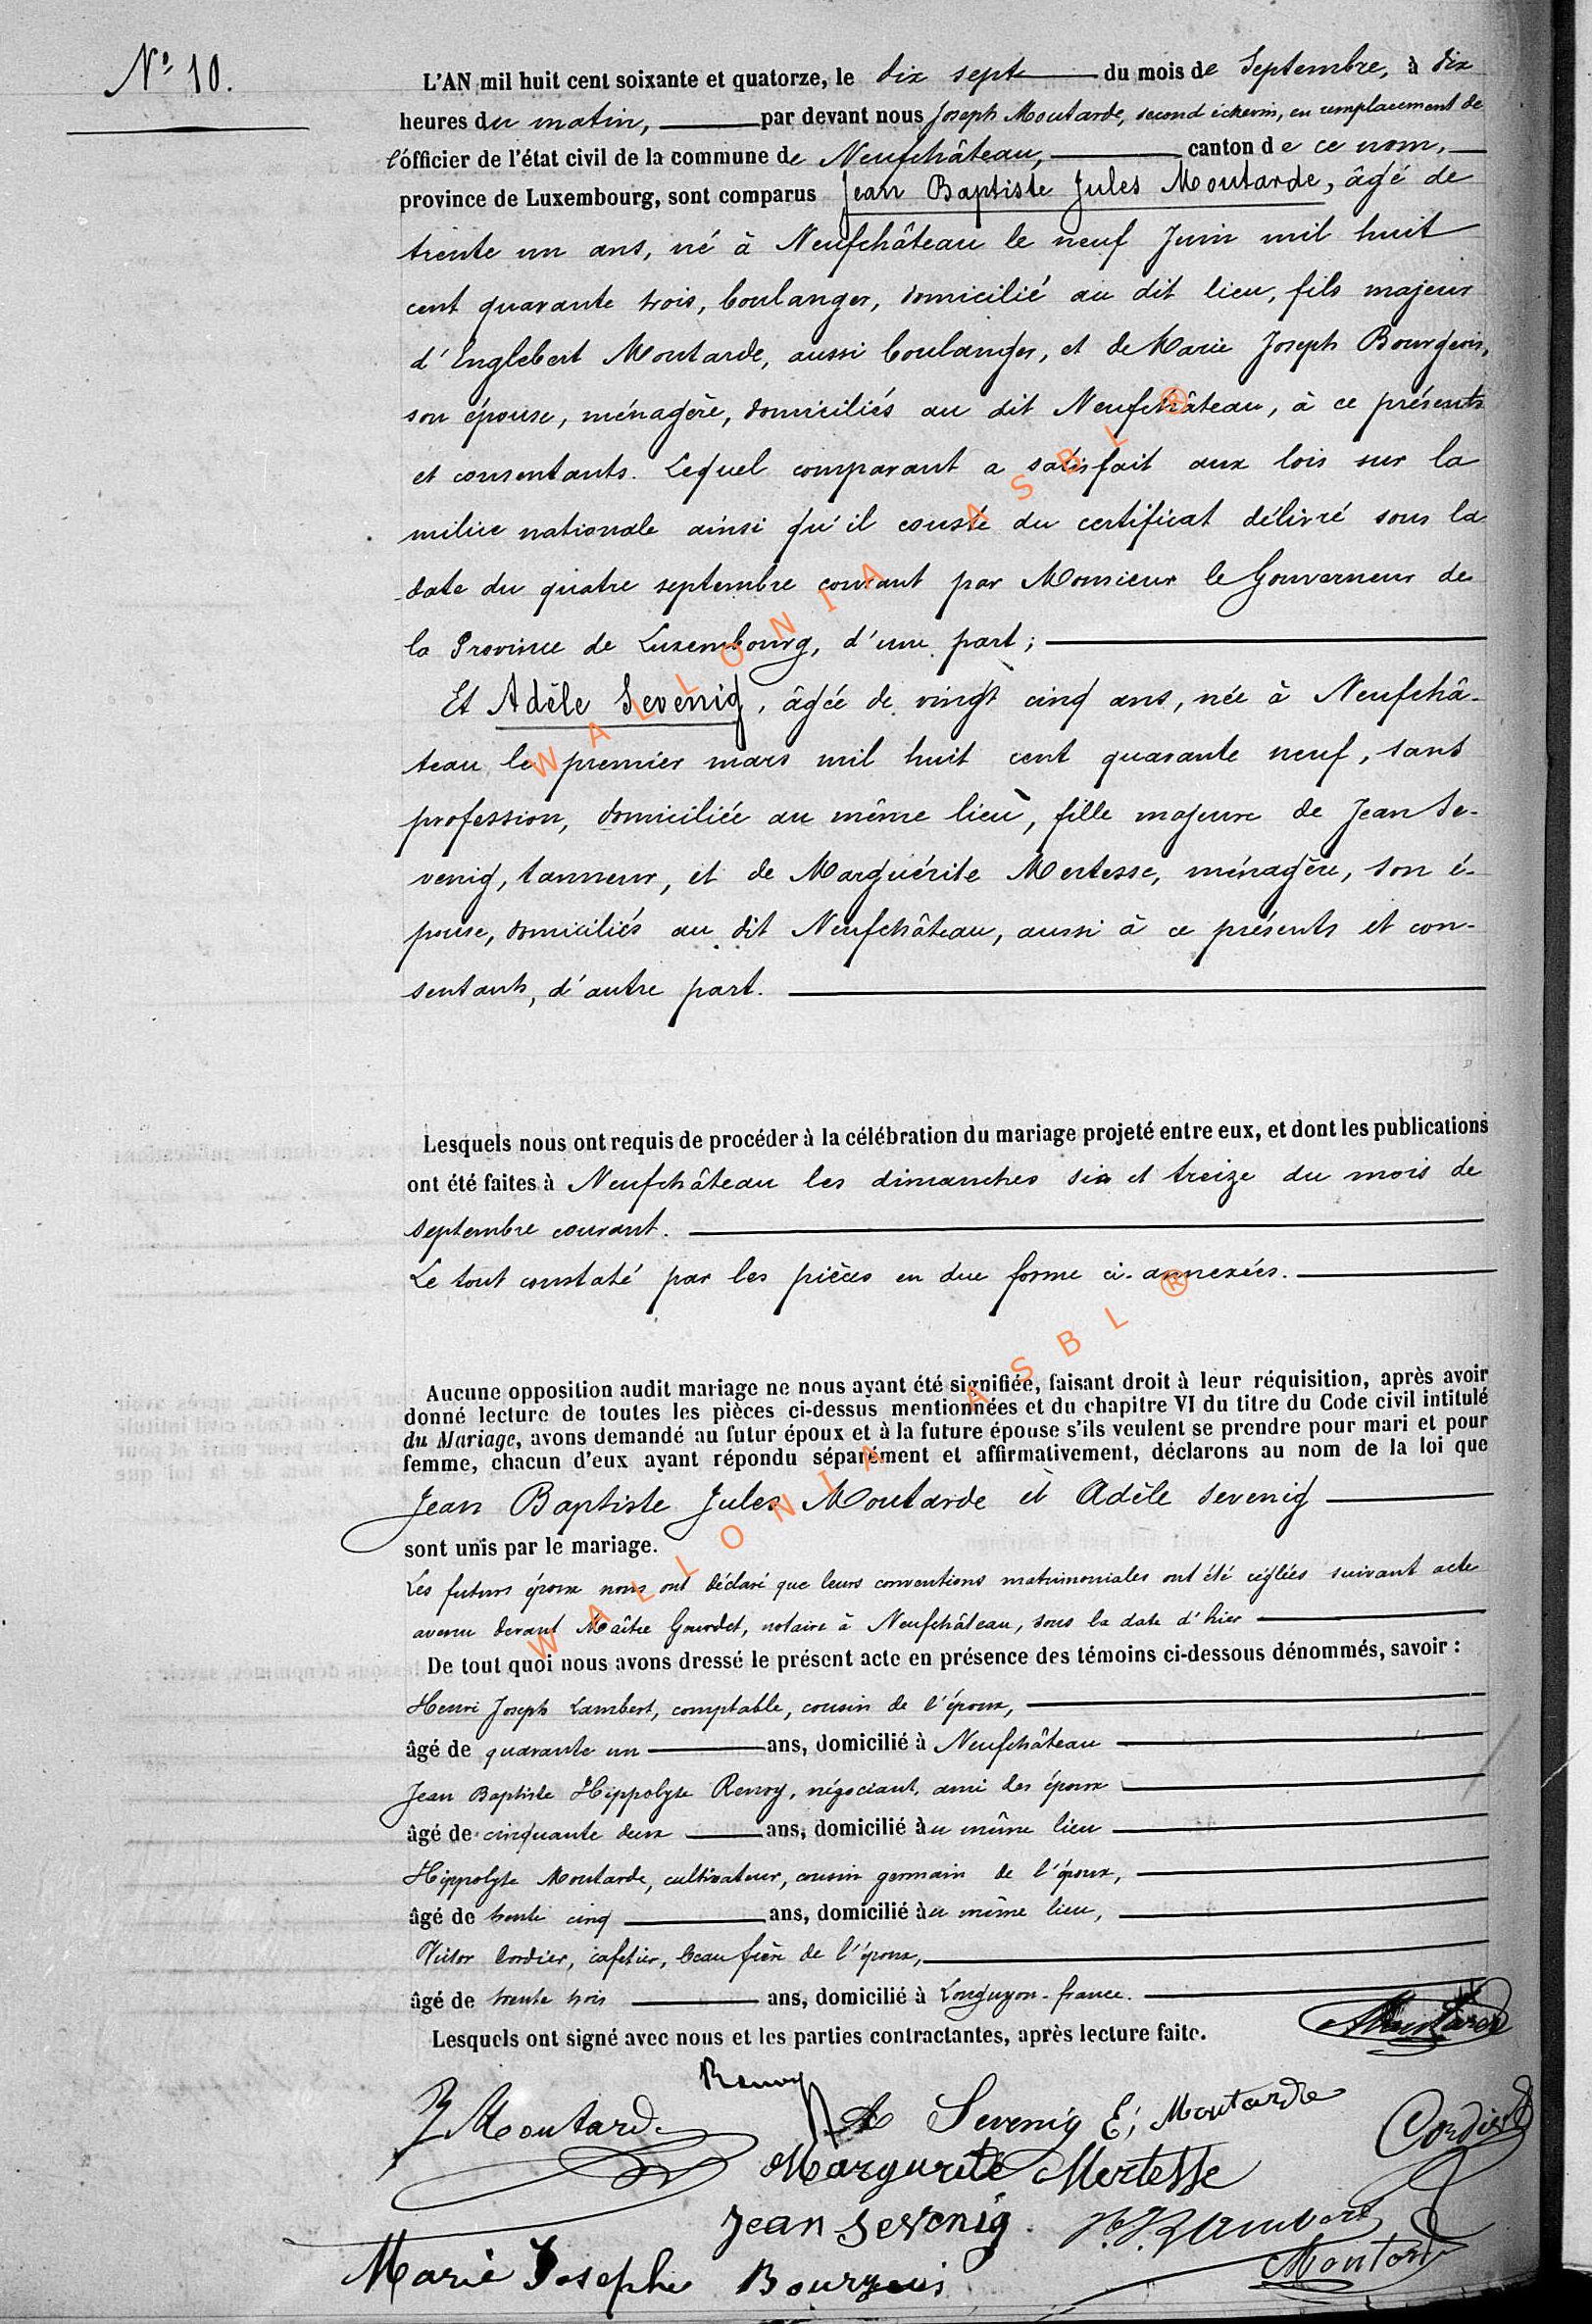 Nº 10.
L'AN mil huit cent soixante et quatorze, le dix sept du mois de Septembre, à dix
heures du matin, par devant nous Joseph Moutarde, second échevin, en remplacement de
l'officier de l'état civil de la commune de Neufchâteau, canton de ce nom,
province de Luxembourg, sont comparus Jean Baptiste Jules Moutarde, âgé de
trente un ans, né à Neufchâteau le neuf Juin mil huit
cent quarante trois, boulanger, domicilié au dit lieu, fils majeur
d'Englebert Moutarde, aussi boulanger, et de Marie Joseph Bourgeois,
son épouse, ménagère, domiciliés au dit Neufchâteau, à ce présents
et consentants. Lequel comparant a satisfait aux lois sur la
milice nationale ainsi qu'il conste du certificat délivré sous la
date du quatre septembre courant par Monsieur le Gouverneur de
la Province de Luxembourg, d'une part;
Et Adèle Sevenig, âgée de vingt cinq ans, née à Neufchâ-
teau le premier mars mil huit cent quarante neuf, sans
profession, domiciliée au même lieu, fille majeure de Jean Se-
venig, tanneur, et de Marguérite Mertesse, ménagère, son é-
pouse, domiciliés au dit Neufchâteau, aussi à ce présents et con-
sentants, d'autre part.
Lesquels nous ont requis de procéder à la célébration du mariage projeté entre eux, et dont les publications
ont été faites à Neufchâteau les dimanches six et treize du mois de
septembre courant.
Le tout constaté par les pièces en due forme ci-annexées.
Aucune opposition audit mariage ne nous ayant été signifiée, faisant droit à leur réquisition, après avoir
donné lecture de toutes les pièces ci-dessus mentionnées et du chapitre VI du titre du Code civil intitulé
du Mariage, avons demandé au futur époux et à la future épouse s'ils veulent se prendre pour mari et pour
femme, chacun d'eux ayant répondu séparément et affirmativement, déclarons au nom de la loi que
Jean Baptiste Jules Moutarde et Adèle Sevenig
sont unis par le mariage.
Les futurs époux nous ont déclaré que leurs conventions matrimoniales ont été réglées suivant acte
avenu devant Maître Gourdet, notaire à Neufchâteau, sous la date d'hier
De tout quoi nous avons dressé le présent acte en présence des témoins ci-dessous dénommés, savoir :
Henri Joseph Lambert, comptable, cousin de l'époux,
âgé de quarante un ans, domicilié à Neufchâteau
Jean Baptiste Hippolyte Renoy, négociant, ami des époux
âgé de cinquante deux ans, domicilié au même lieu
Hippolyte Moutarde, cultivateur, cousin germain de l'époux,
âgé de trente cinq ans, domicilié au même lieu,
Victor Cordier, cafetier, beau frère de l'époux,
âgé de trente trois ans, domicilié à Longuyon-france.
Lesquels ont signé avec nous et les parties contractantes, après lecture faite.
Moutarde
Renoy
J Moutarde A Sevenig E, Moutarde Cordier
Margurite Mertesse
Jean Sevenig. H. J. Lambert
Marie Josephe Bourgeois Moutarde
WALLONIA ASBL ®
WALLONIA ASBL ®